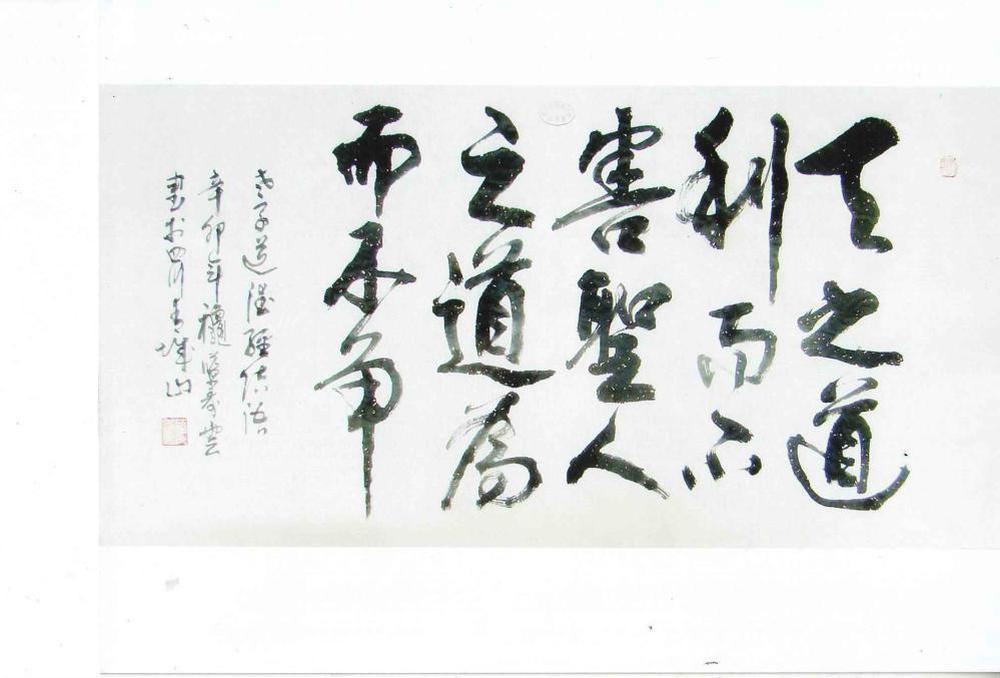 天之道
利而不
害聖人
之道為
而不争
老子道德經结语
辛卯年
書於四川青城山